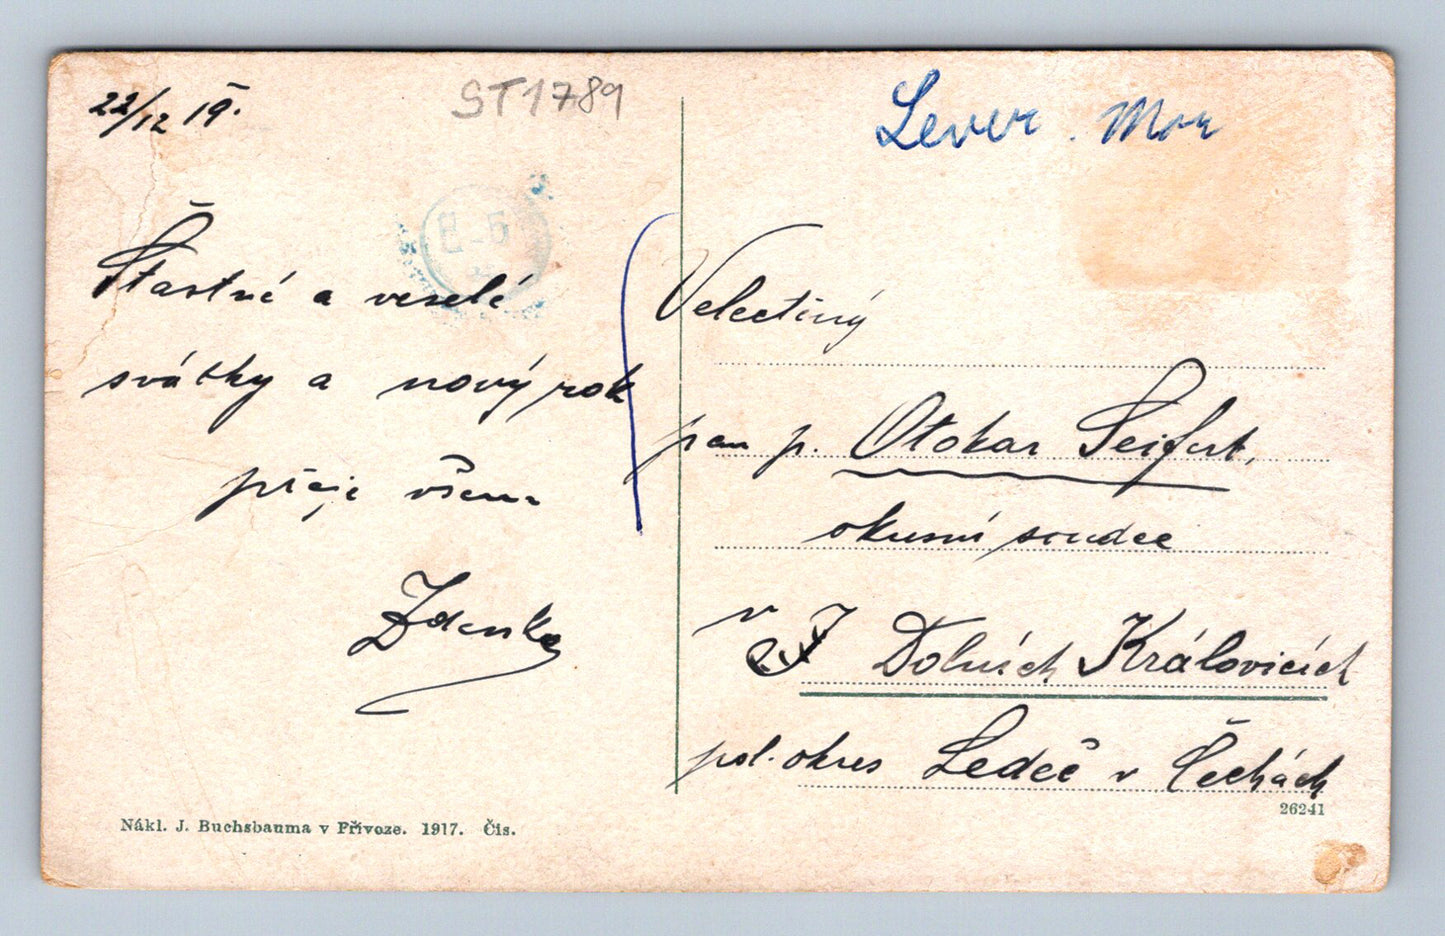 22/12 19.
ST1789
Šťastné a veselé
svátky a nový rok
přeje všem
Zdenka
Nákl. J. Buchsbauma v Přívoze. 1917. Čís.
Lever
Velectěný
pan p. Otokar Seifert,
okresní soudce
v Dolních Královicích
pol. okres Ledeč v Čechách
26241